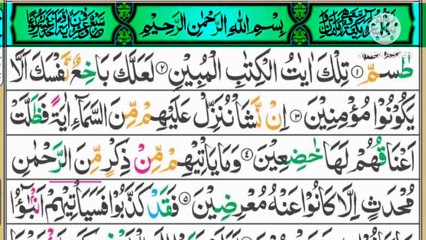 بِسْمِ اللهِ الرَّحْمٰنِ الرَّحِيْمِ
K
طٰسٓمّٓ ﴿۱﴾ تِلْكَ اٰيٰتُ الْكِتٰبِ الْمُبِيْنِ ﴿۲﴾ لَعَلَّكَ بَاخِعٌ نَّفْسَكَ اَلَّا
يَكُوْنُوْا مُؤْمِنِيْنَ ﴿۳﴾ اِنْ نَّشَاْ نُنَزِّلْ عَلَيْهِمْ مِّنَ السَّمَآءِ اٰيَةً فَظَلَّتْ
اَعْنَاقُهُمْ لَهَا خٰضِعِيْنَ ﴿۴﴾ وَمَا يَاْتِيْهِمْ مِّنْ ذِكْرٍ مِّنَ الرَّحْمٰنِ
مُحْدَثٍ اِلَّا كَانُوْا عَنْهُ مُعْرِضِيْنَ ﴿۵﴾ فَقَدْ كَذَّبُوْا فَسَيَاْتِيْهِمْ اَنْۢبٰٓؤُا